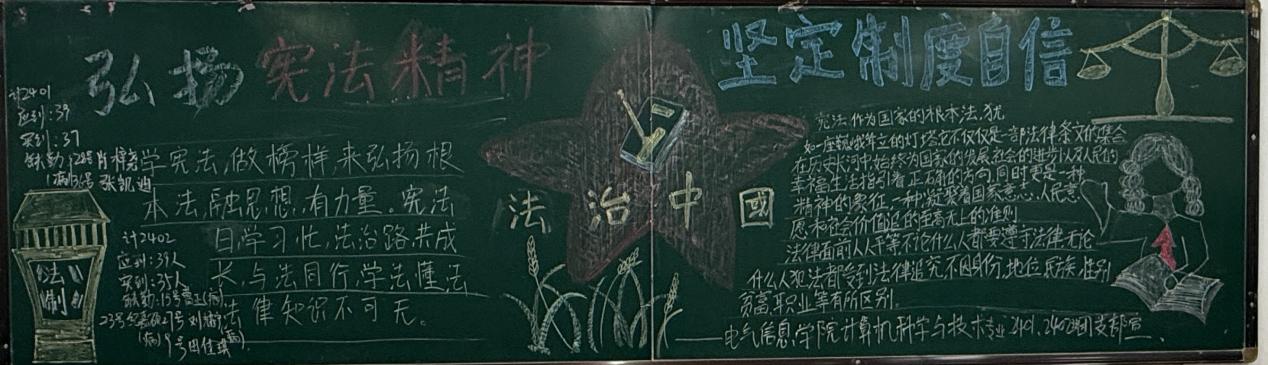 弘扬宪法精神
计2401
应到:39
实到:37
缺勤:28号肖
(病)36号张凯迪
学宪法,做榜样,来弘扬根
本法,融思想,有力量。宪法
日学习忙,法治路共成
长,与法同行,学法懂法
法律知识不可无。
计2402
应到:39人
实到:35人
缺勤:15号
23号 27号刘
(病)9号田佳琪(病)
法制
法治中國
坚定制度自信
宪法作为国家的根本法,犹
如一座巍峨耸立的灯塔它不仅仅是一部法律条文的集合
在历史长河中始终为国家的发展,社会的进步以及人民的
幸福生活指引着正确的方向,同时更是一种
精神的象征,一种凝聚着国家意志、人民意
愿和社会价值追求的至高无上的准则
法律面前人人平等不论什么人都要遵守法律无论
什么人犯法都受到法律追究,不因身份,地位,民族,性别
贫富,职业等有所区别。
——电气信息学院计算机科学与技术专业2401、2402团支部宣